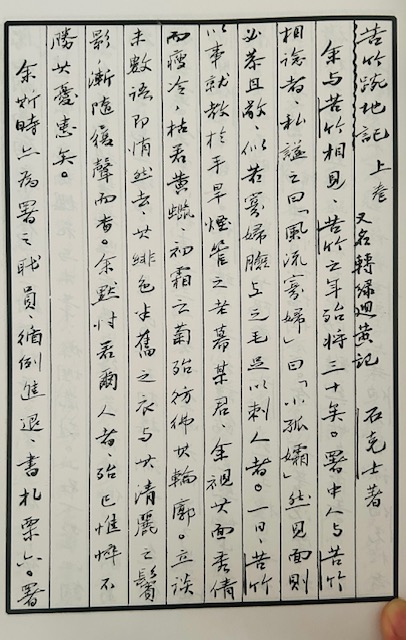 苦竹踠地記 上卷 又名轉綠迴黃記 石克士著
余与苦竹相見、苦竹之年殆將三十矣。署中人与苦竹
相諗者、私謚之曰「風流寡婦」曰「小孤孀」然見面則
必恭且敬、似若寡婦臉上之毛足以刺人者。一日、苦竹
以事就教於手旱煙管之老幕某君、余視其面秀倩
而瘦冷、枯若黃蠟、初霜之菊殆彷彿其輪廓。立談
未數語即悄然去、其緋色半舊之衣与其清麗之鬢
影、漸隨履聲而杳。余默忖若爾人者、殆已憔悴不
勝其憂患矣。
余斯時亦為署之職員、循例進退、書札栗六。署